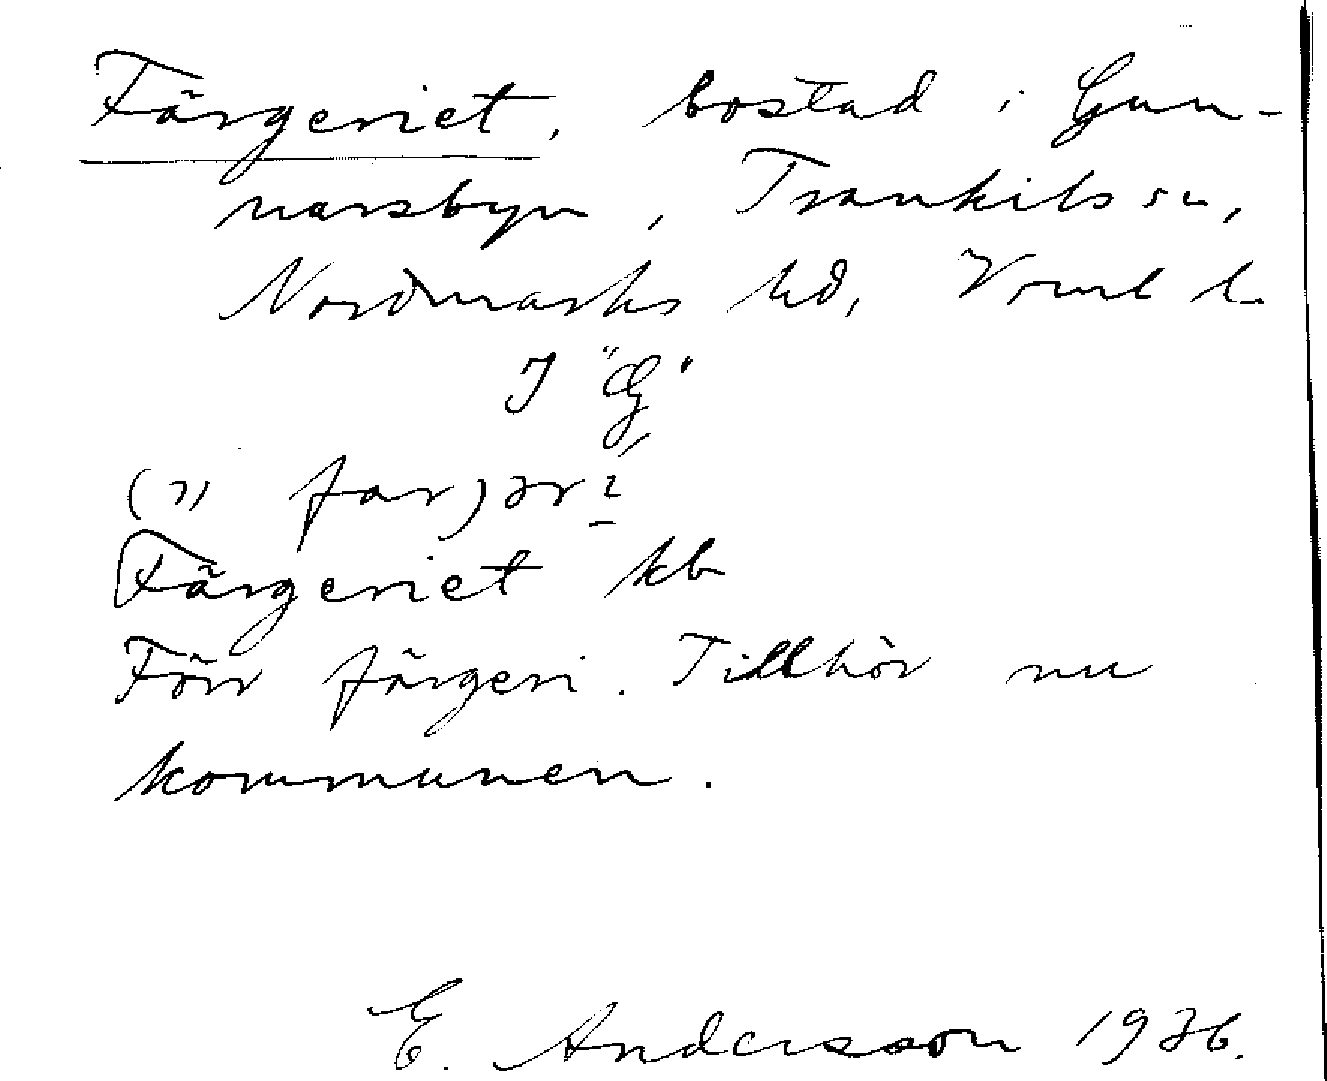 Färgeriet, bostad i Gun-
narsbyn, Trankils sn,
Nordmarks hd, Vrml l.
I "G"
Färgeriet kb
Förr färgeri. Tillhör nu
kommunen.
E. Andersson 1936.